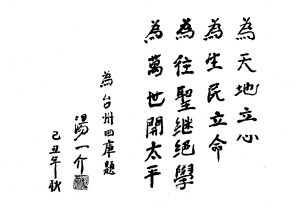 為天地立心
為生民立命
為往聖继絕學
為萬世開太平
為台州四庫題
湯一介
己丑年秋